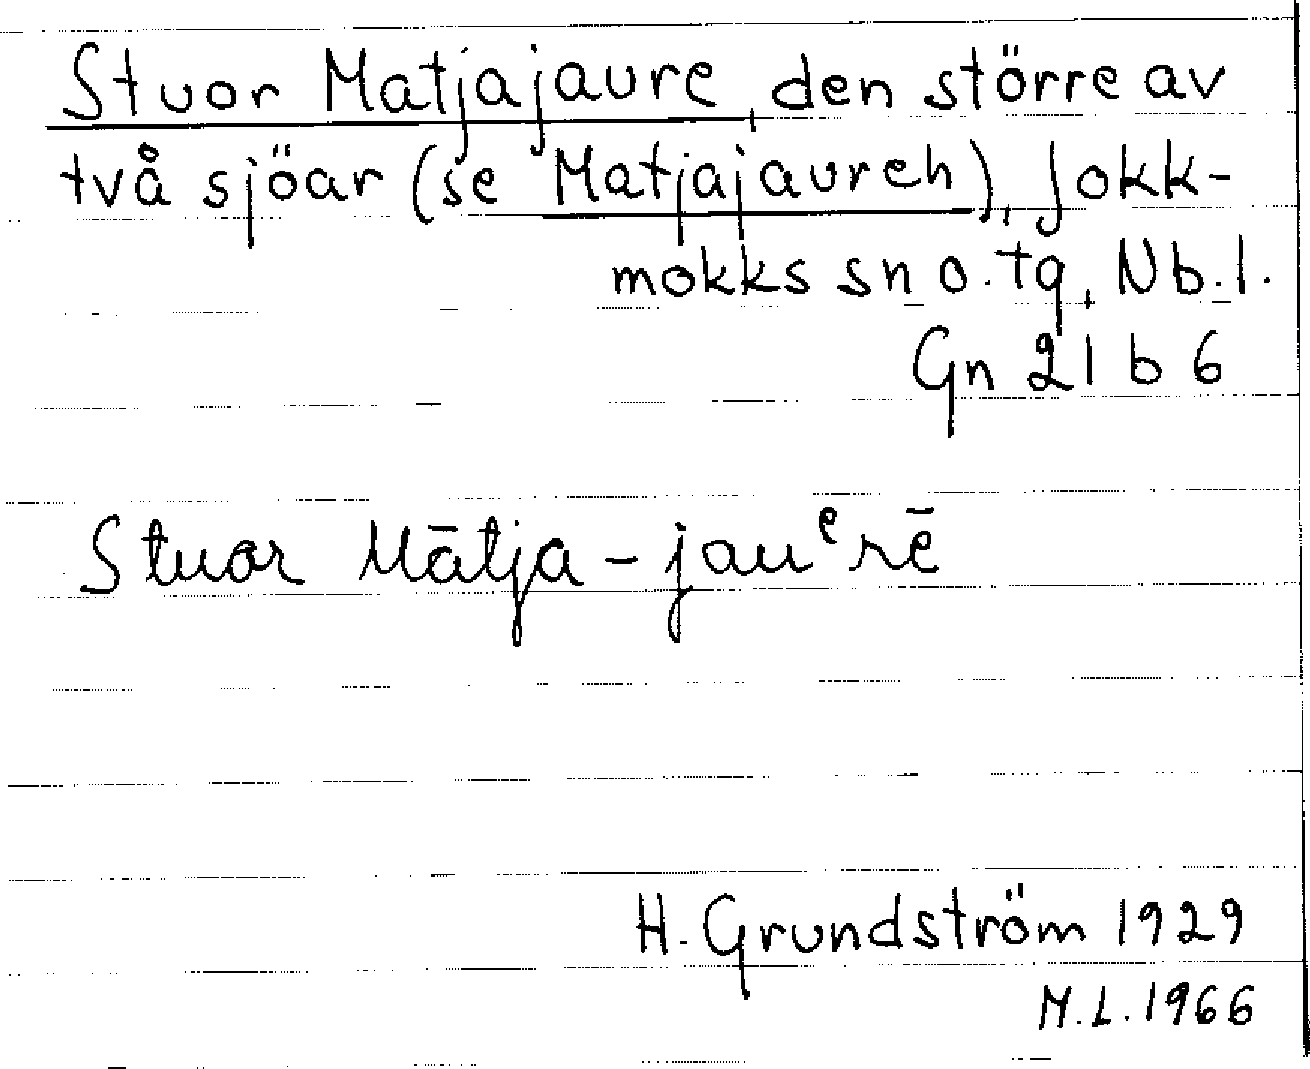 Stuor Matjajaure, den större av
två sjöar (se Matjajaureh), Jokk-
mokks sn o. tg, Nb. l.
Gn 21 b 6
Stuor Mātja-jauᵉrē
H. Grundström 1929
M.L. 1966